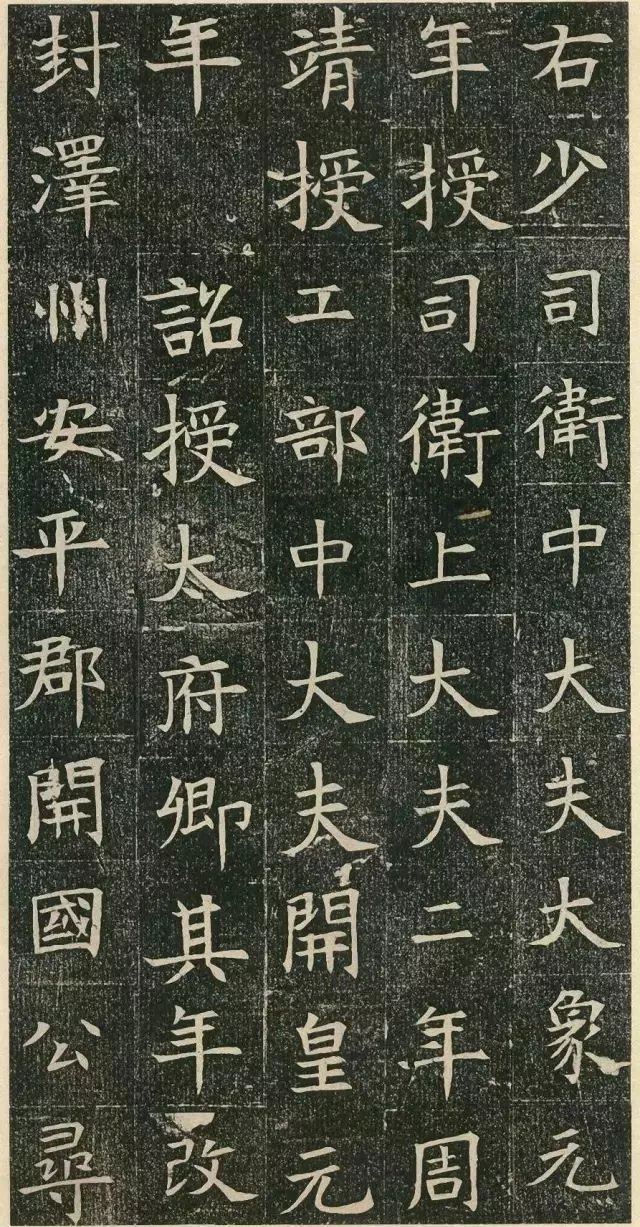 右少司衛中大夫大象元
年授司衛上大夫二年周
靖授工部中大夫開皇元
年　詔授太府卿其年改
封澤州安平郡開國公尋